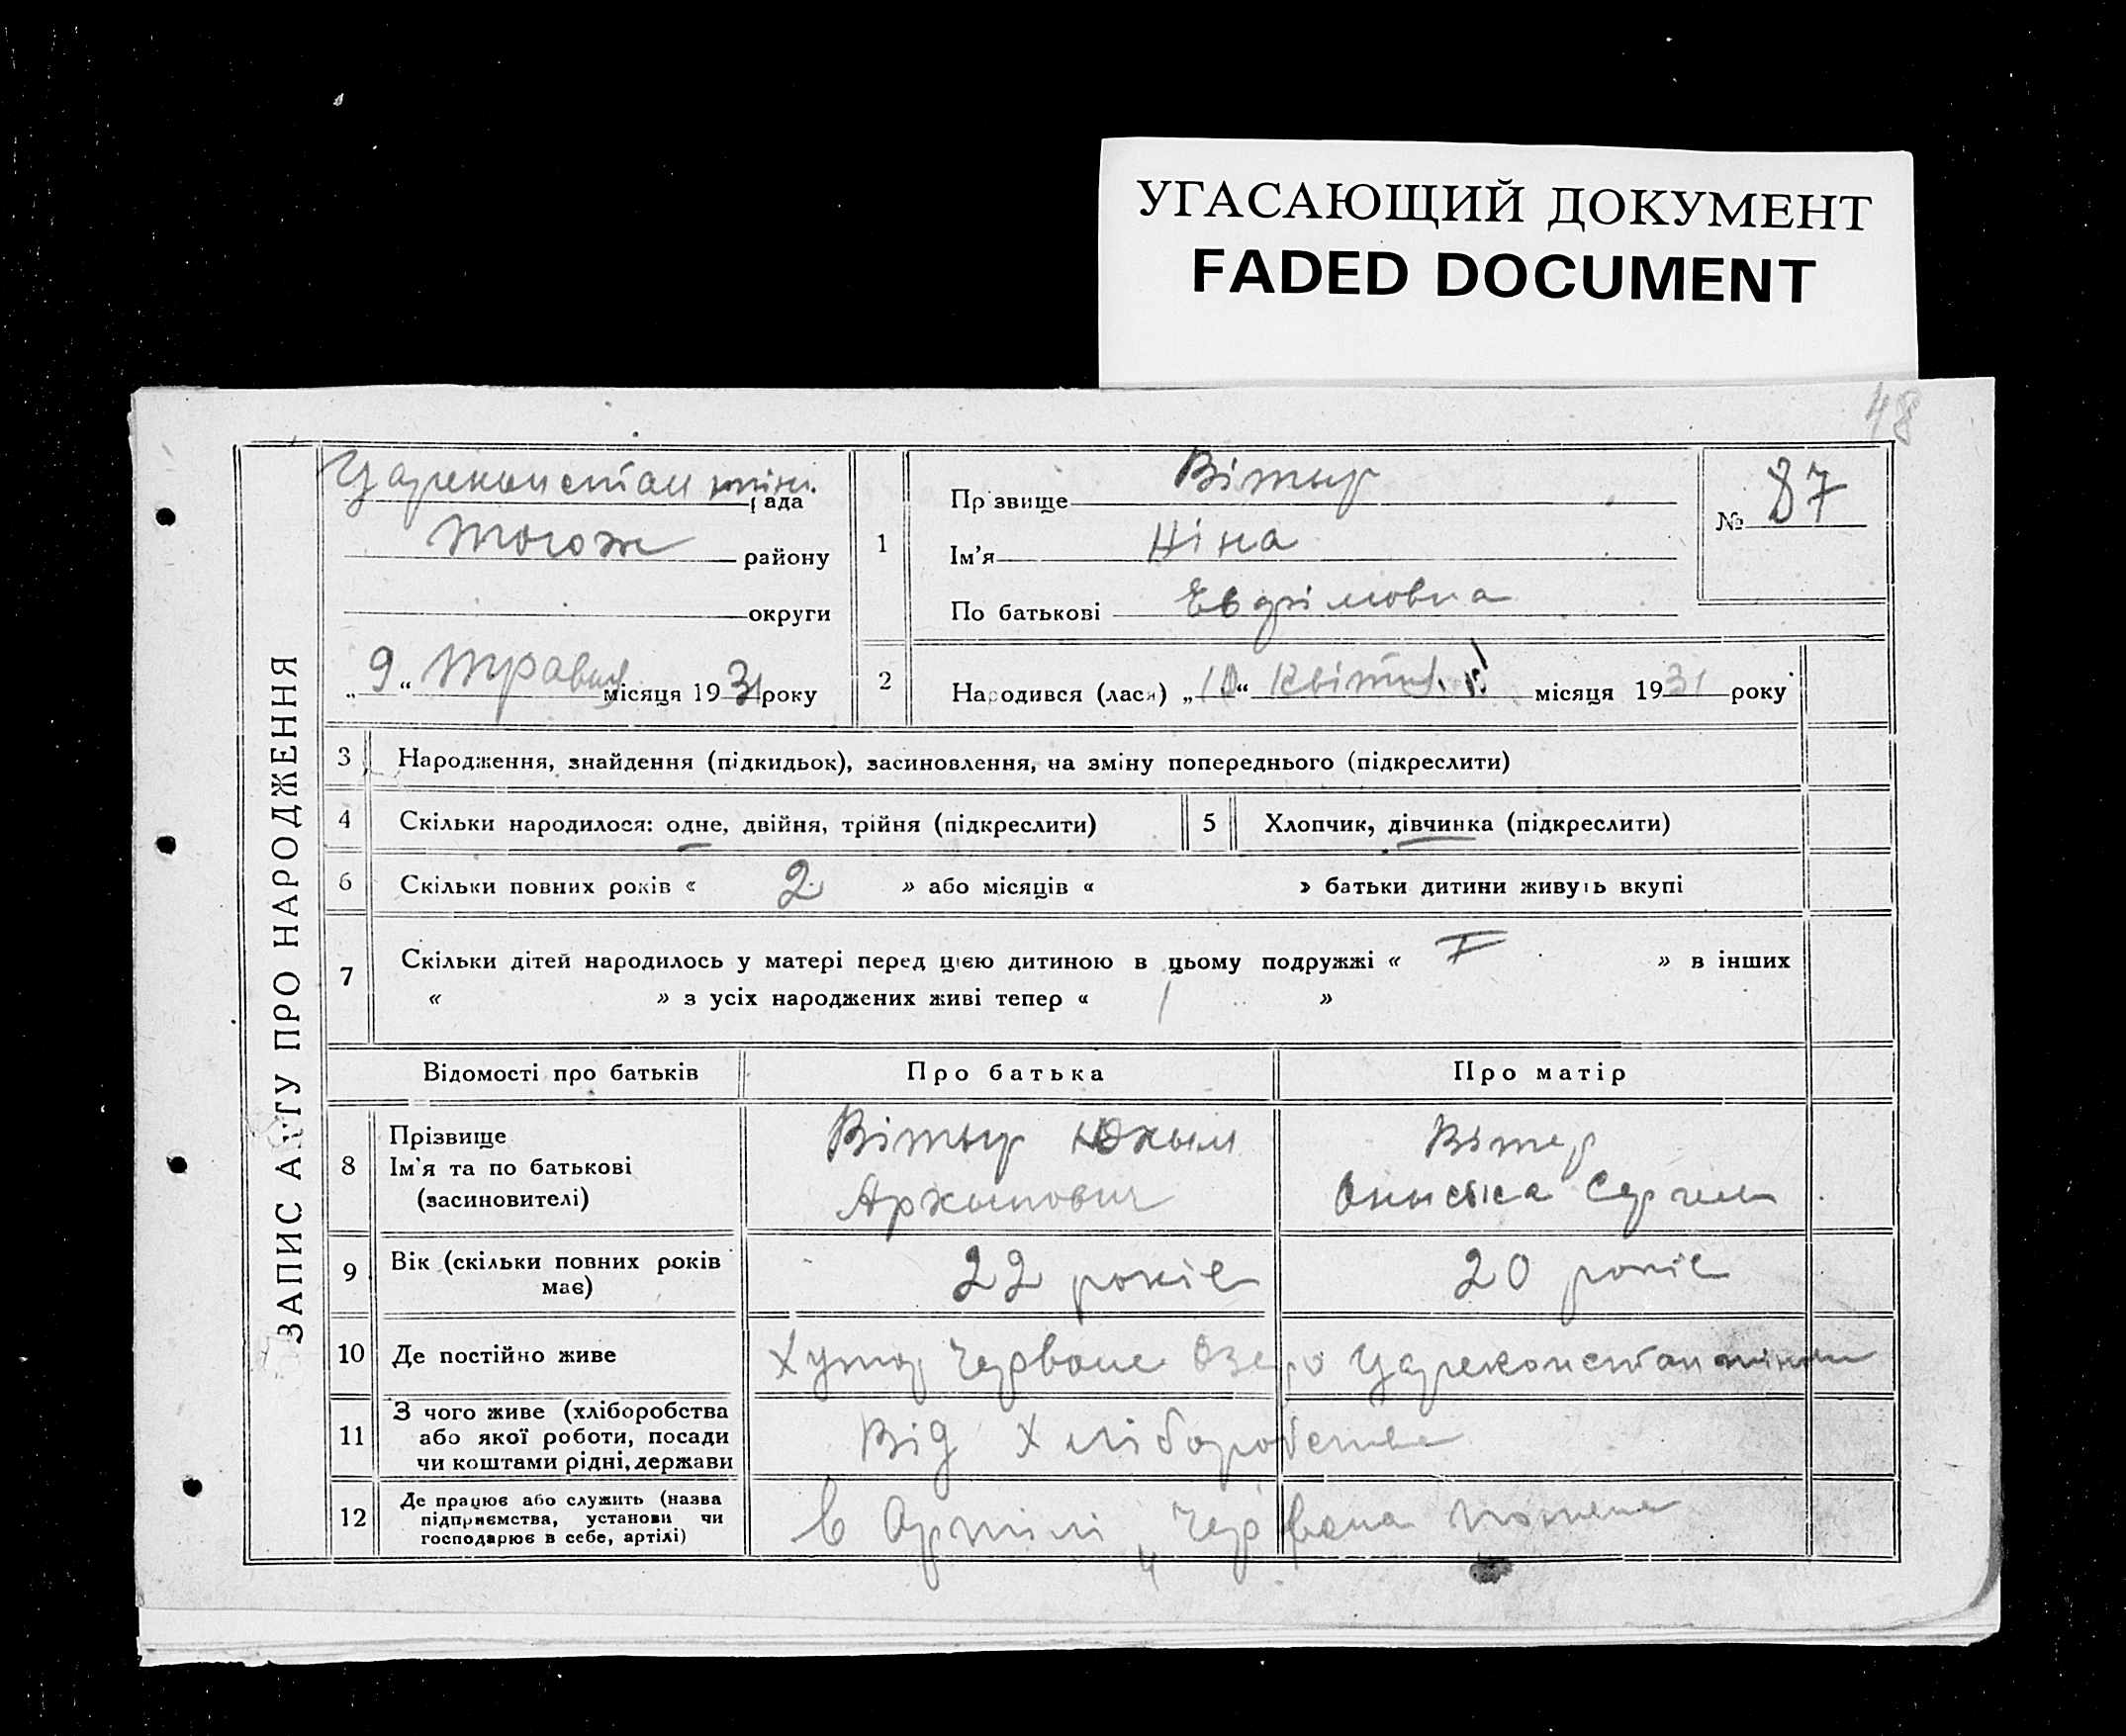 УГАСАЮЩИЙ ДОКУМЕНТ
FADED DOCUMENT
48
ЗАПИС АКТУ ПРО НАРОДЖЕННЯ
Цареконстантинів. рада
тогож району
округи
„9“ травня місяця 1931 року
1
Прізвище Вітыр
Ім'я Ніна
По батькові
№ 87
2 Народився (лася) „10“ місяця 1931 року
3 Народження, знайдення (підкидьок), засиновлення, на зміну попереднього (підкреслити)
4 Скільки народилося: одне, двійня, трійня (підкреслити) 5 Хлопчик, дівчинка (підкреслити)
6 Скільки повних років « 2 » або місяців « » батьки дитини живуть вкупі
7 Скільки дітей народилось у матері перед цією дитиною в цьому подружжі « I » в інших
« » з усіх народжених живі тепер « 1 »
Відомості про батьків Про батька Про матір
8 Прізвище
Ім'я та по батькові
(засиновителі)
Вітыр Юхым
Архыпович
Вітер
Сергеев
9 Вік (скільки повних років
має)
22 років 20 років
10 Де постійно живе Хутор Червоне Озеро
11 З чого живе (хліборобства
або якої роботи, посади
чи коштами рідні, держави
Від Хліборобства
12 Де працює або служить (назва
підприємства, установи чи
господарює в себе, артілі)
в Артілі „Червона